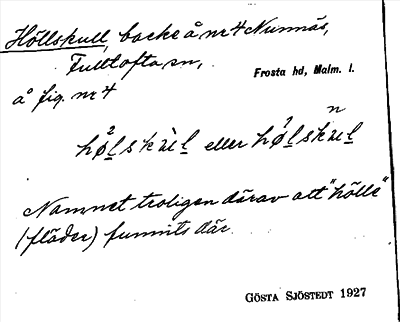 Höllskull, backe å nr 4 Nunnäs,
Fulltofta sn,
Frosta hd, Malm. l.
å fig. nr 4
hø²l sk ùl eller hø¹l sk ul
Namnet troligen därav att "hölle"
(fläder) funnits där.
GÖSTA SJÖSTEDT 1927